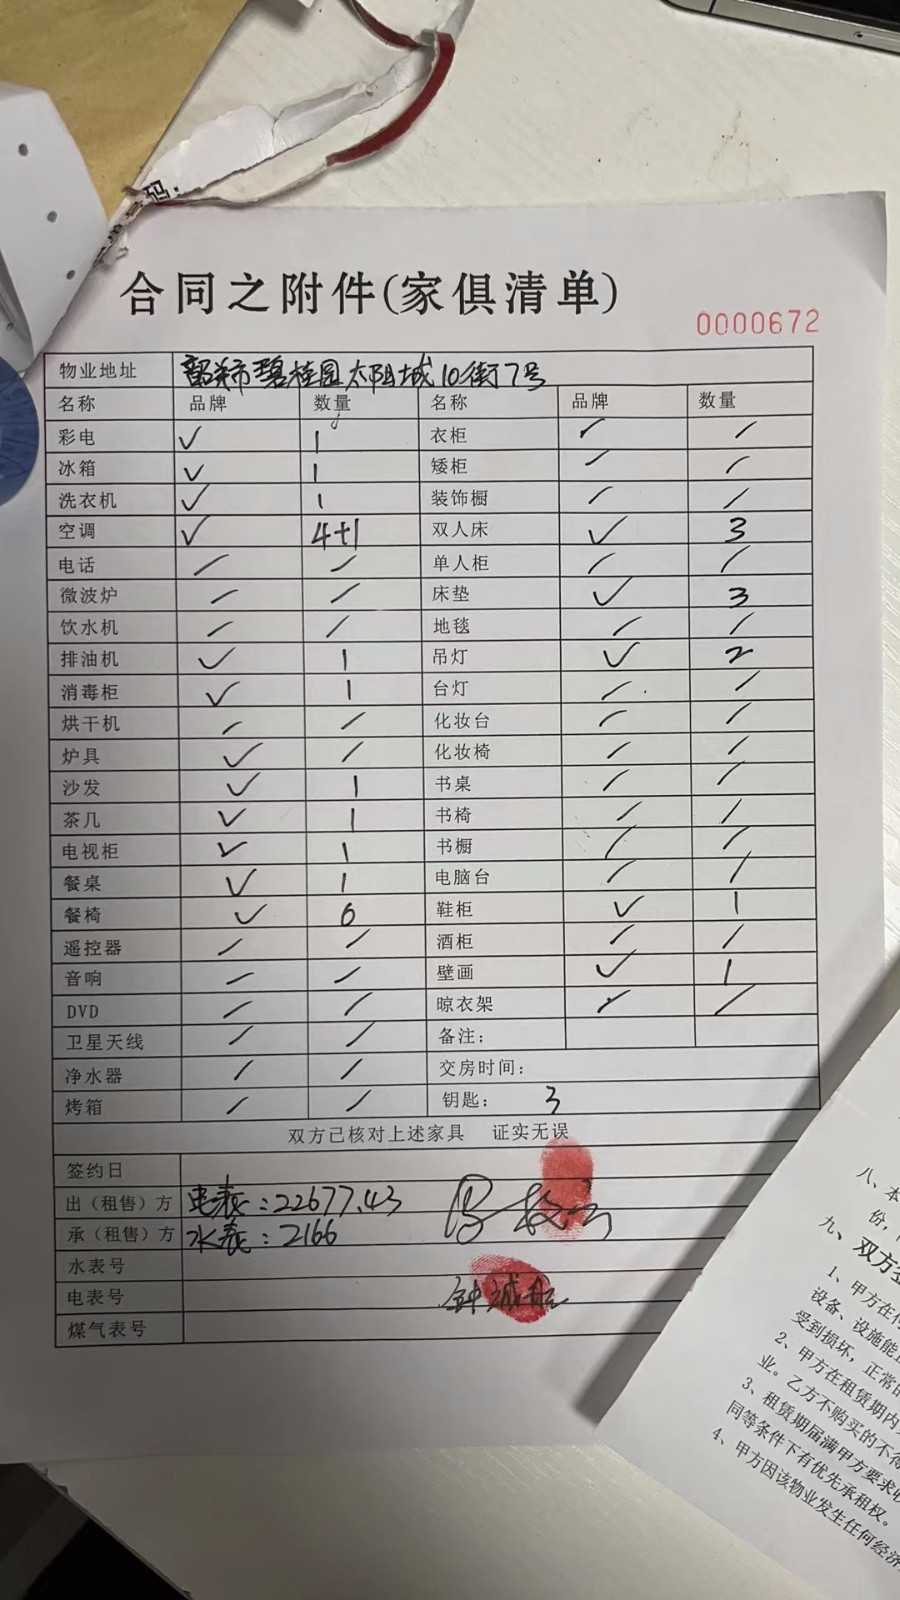 码.
合同之附件(家俱清单)
0000672
物业地址 韶关市碧桂园太阳城10街7号
名称 品牌 数量 名称 品牌 数量
彩电 ✓ 1 衣柜 / /
冰箱 ✓ 1 矮柜 / /
洗衣机 ✓ 1 装饰橱 / /
空调 ✓ 4+1 双人床 ✓ 3
电话 / / 单人柜 / /
微波炉 / / 床垫 ✓ 3
饮水机 / / 地毯 / /
排油机 ✓ 1 吊灯 ✓ 2
消毒柜 ✓ 1 台灯 / /
烘干机 / / 化妆台 / /
炉具 ✓ / 化妆椅 / /
沙发 ✓ 1 书桌 / /
茶几 ✓ 1 书椅 / /
电视柜 ✓ 1 书橱 / /
餐桌 ✓ 1 电脑台 / /
餐椅 ✓ 6 鞋柜 ✓ 1
遥控器 / / 酒柜 / /
音响 / / 壁画 ✓ 1
DVD / / 晾衣架 / /
卫星天线 / / 备注:
净水器 / / 交房时间:
烤箱 / / 钥匙: 3
双方已核对上述家具 证实无误
签约日
出（租售）方 电表:22677.43
承（租售）方 水表:2166
水表号
电表号 钟诚
煤气表号
八、本
份，
九、双方
1、甲方在
设备、设施能
受到损坏，正常的
2、甲方在租赁期内
业。乙方不购买的不得
3、租赁期届满甲方要求
同等条件下有优先承租权。
4、甲方因该物业发生任何经济